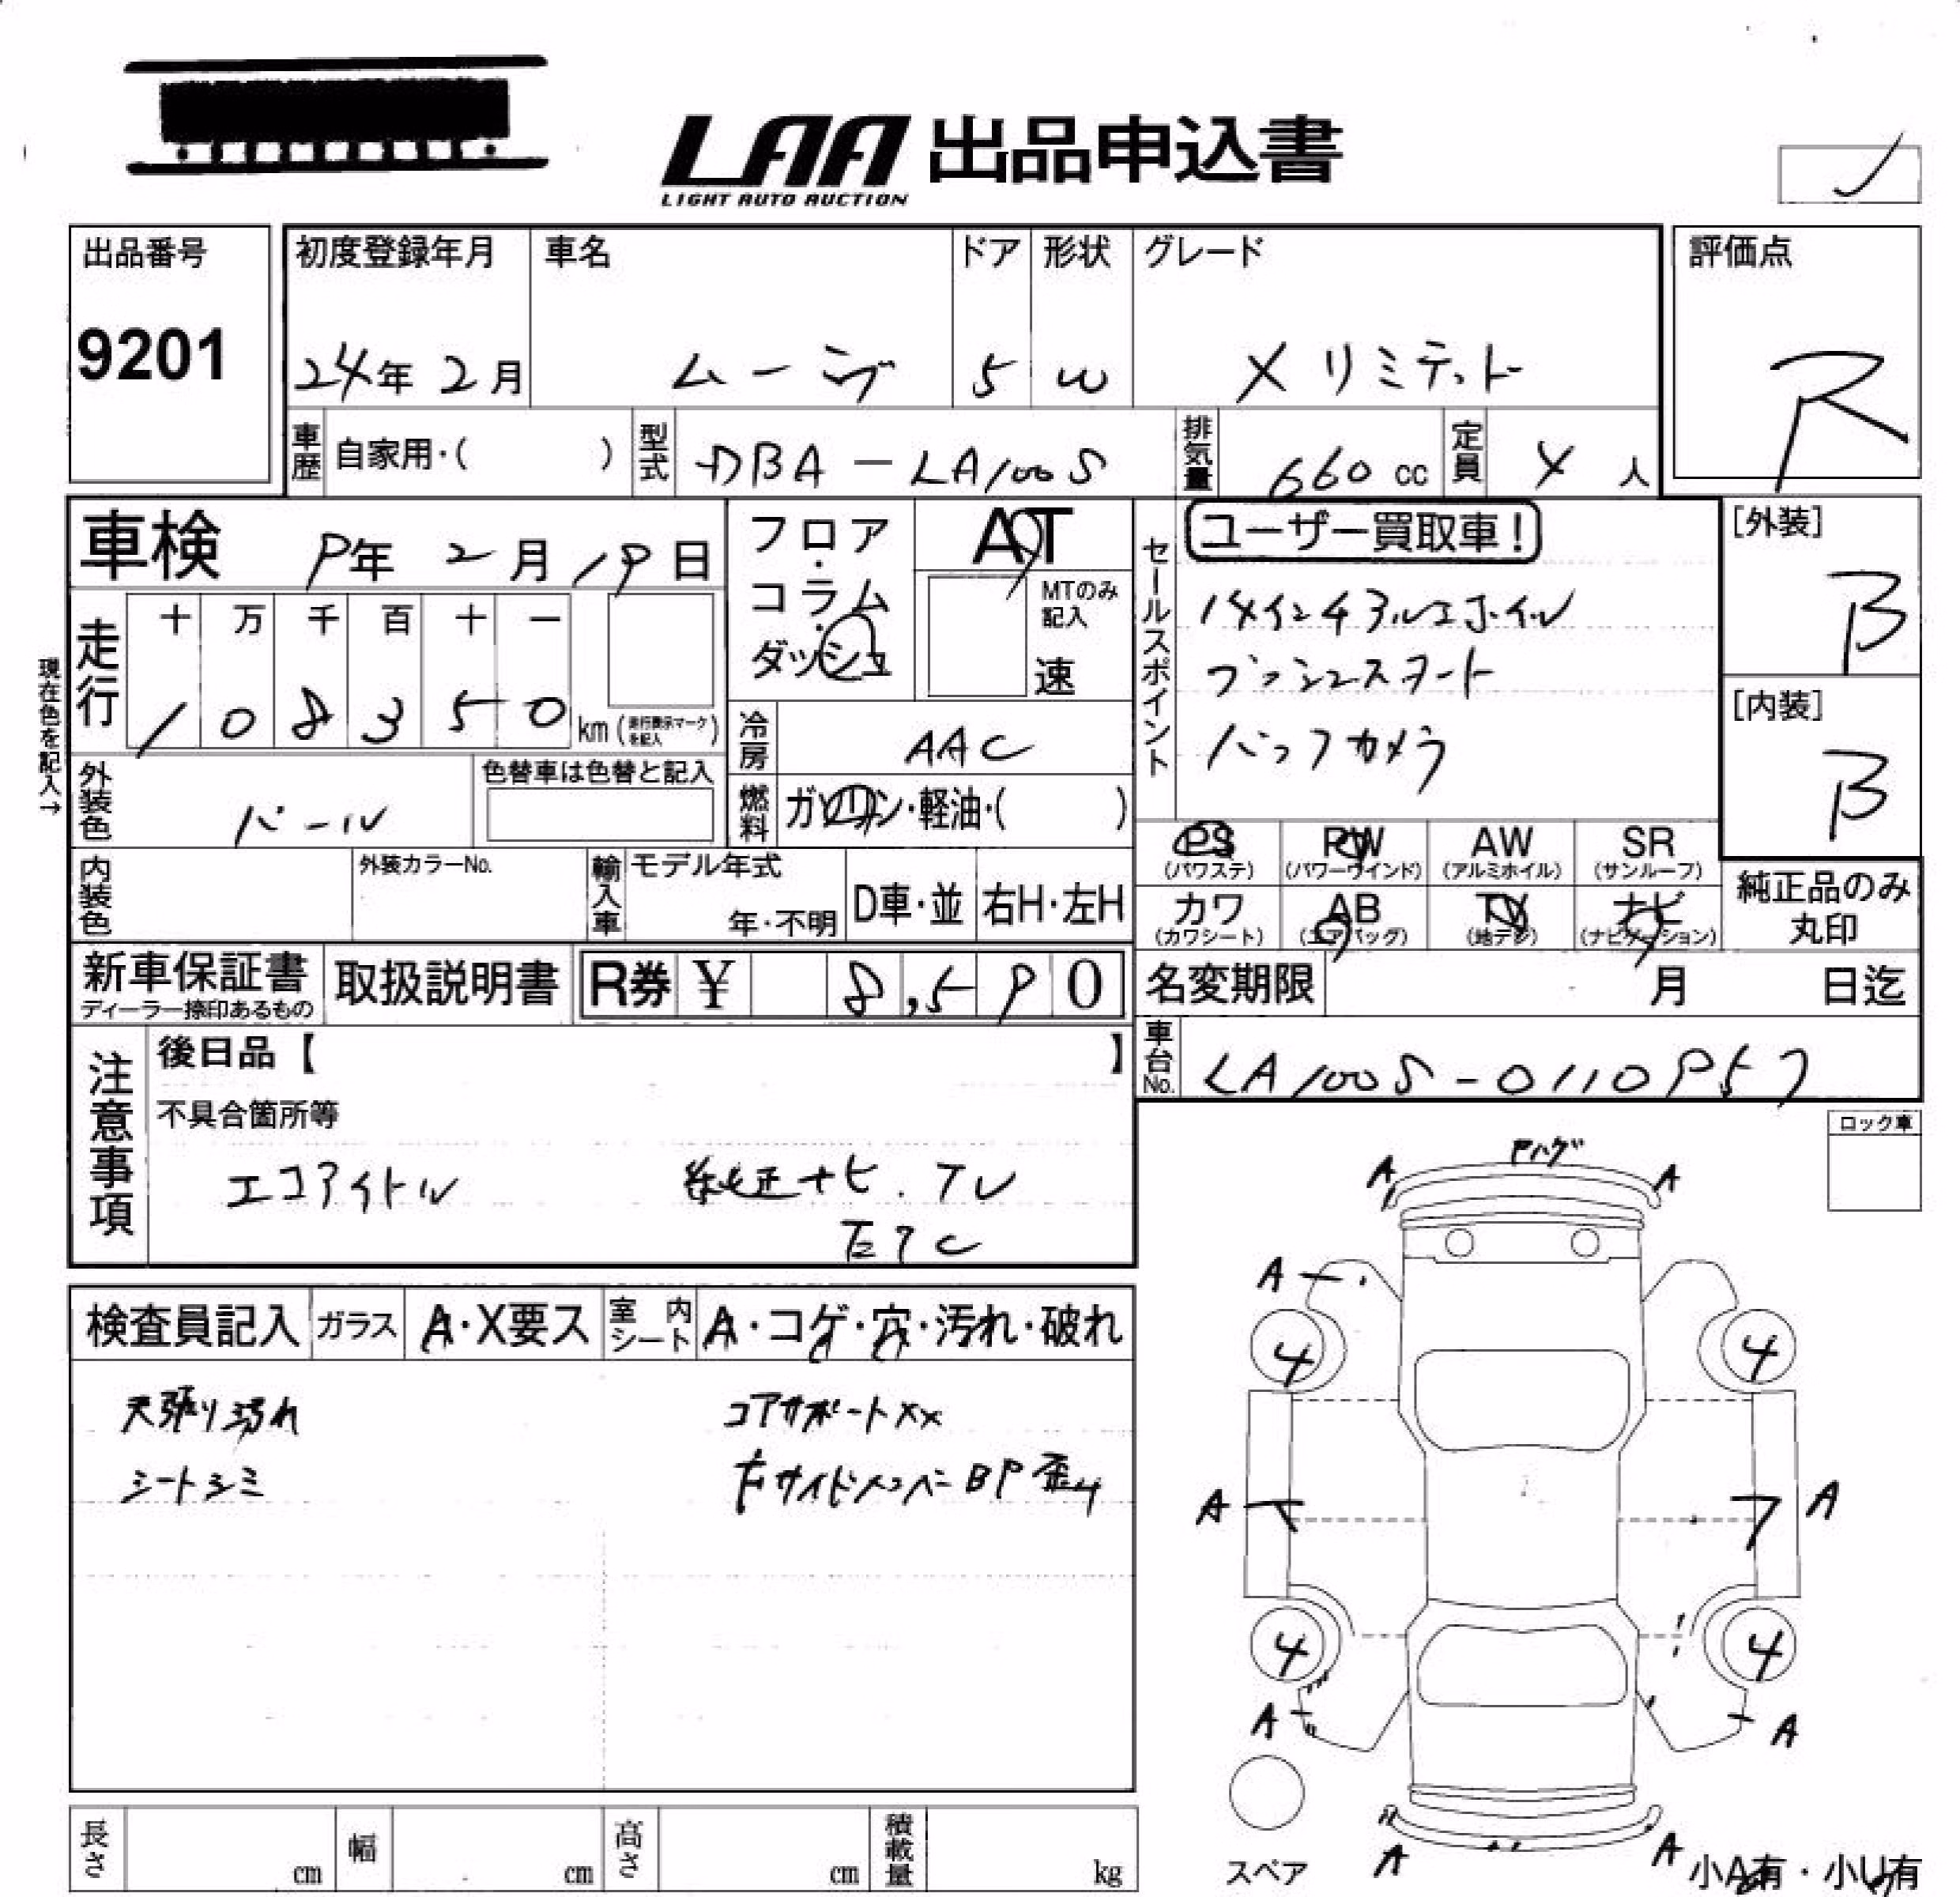 LAA 出品申込書
LIGHT AUTO AUCTION
出品番号
9201
初度登録年月
24年 2月
車名
ムーヴ
ドア
5
形状
W
グレード
X リミテッド
評価点
R
車歴
自家用・( )
型式
DBA - LA100S
排気量
660 cc
定員
4 人
車検
9年 2月 19日
フロア・コラム・ダッシュ
AT
MTのみ記入
速
走行
十 万 千 百 十 一
1 0 8 3 5 0 km (走行表示マークを記入)
現在色を記入→
外装色
パール
色替車は色替と記入
冷房
AAC
燃料
ガソリン・軽油・( )
内装色
外装カラーNo.
輸入車
モデル年式
年・不明
D車・並
右H・左H
セールスポイント
ユーザー買取車!
14インチアルミホイル
プッシュスタート
バックカメラ
[外装]
B
[内装]
B
PS
(パワステ)
PW
(パワーウインド)
AW
(アルミホイル)
SR
(サンルーフ)
カワ
(カワシート)
AB
(エアバッグ)
TV
(地デジ)
ナビ
(ナビゲーション)
純正品のみ
丸印
新車保証書
ディーラー捺印あるもの
取扱説明書
R券 ¥ 8,590
名変期限
月 日迄
車台No.
LA100S-0110957
注意事項
後日品【 】
不具合箇所等
エコアイドル
純正ナビ.TV
ETC
ロック車
検査員記入
ガラス
A・X要ス
室内シート
A・コゲ・穴・汚れ・破れ
天張り汚れ
シートシミ
コアサポートXX
右サイドメンバー BP 歪み
Pハゲ
A A
A
4 4
A A
4 4
A A
A A
スペア
小A有・小U有
長さ cm
幅 cm
高さ cm
積載量 kg